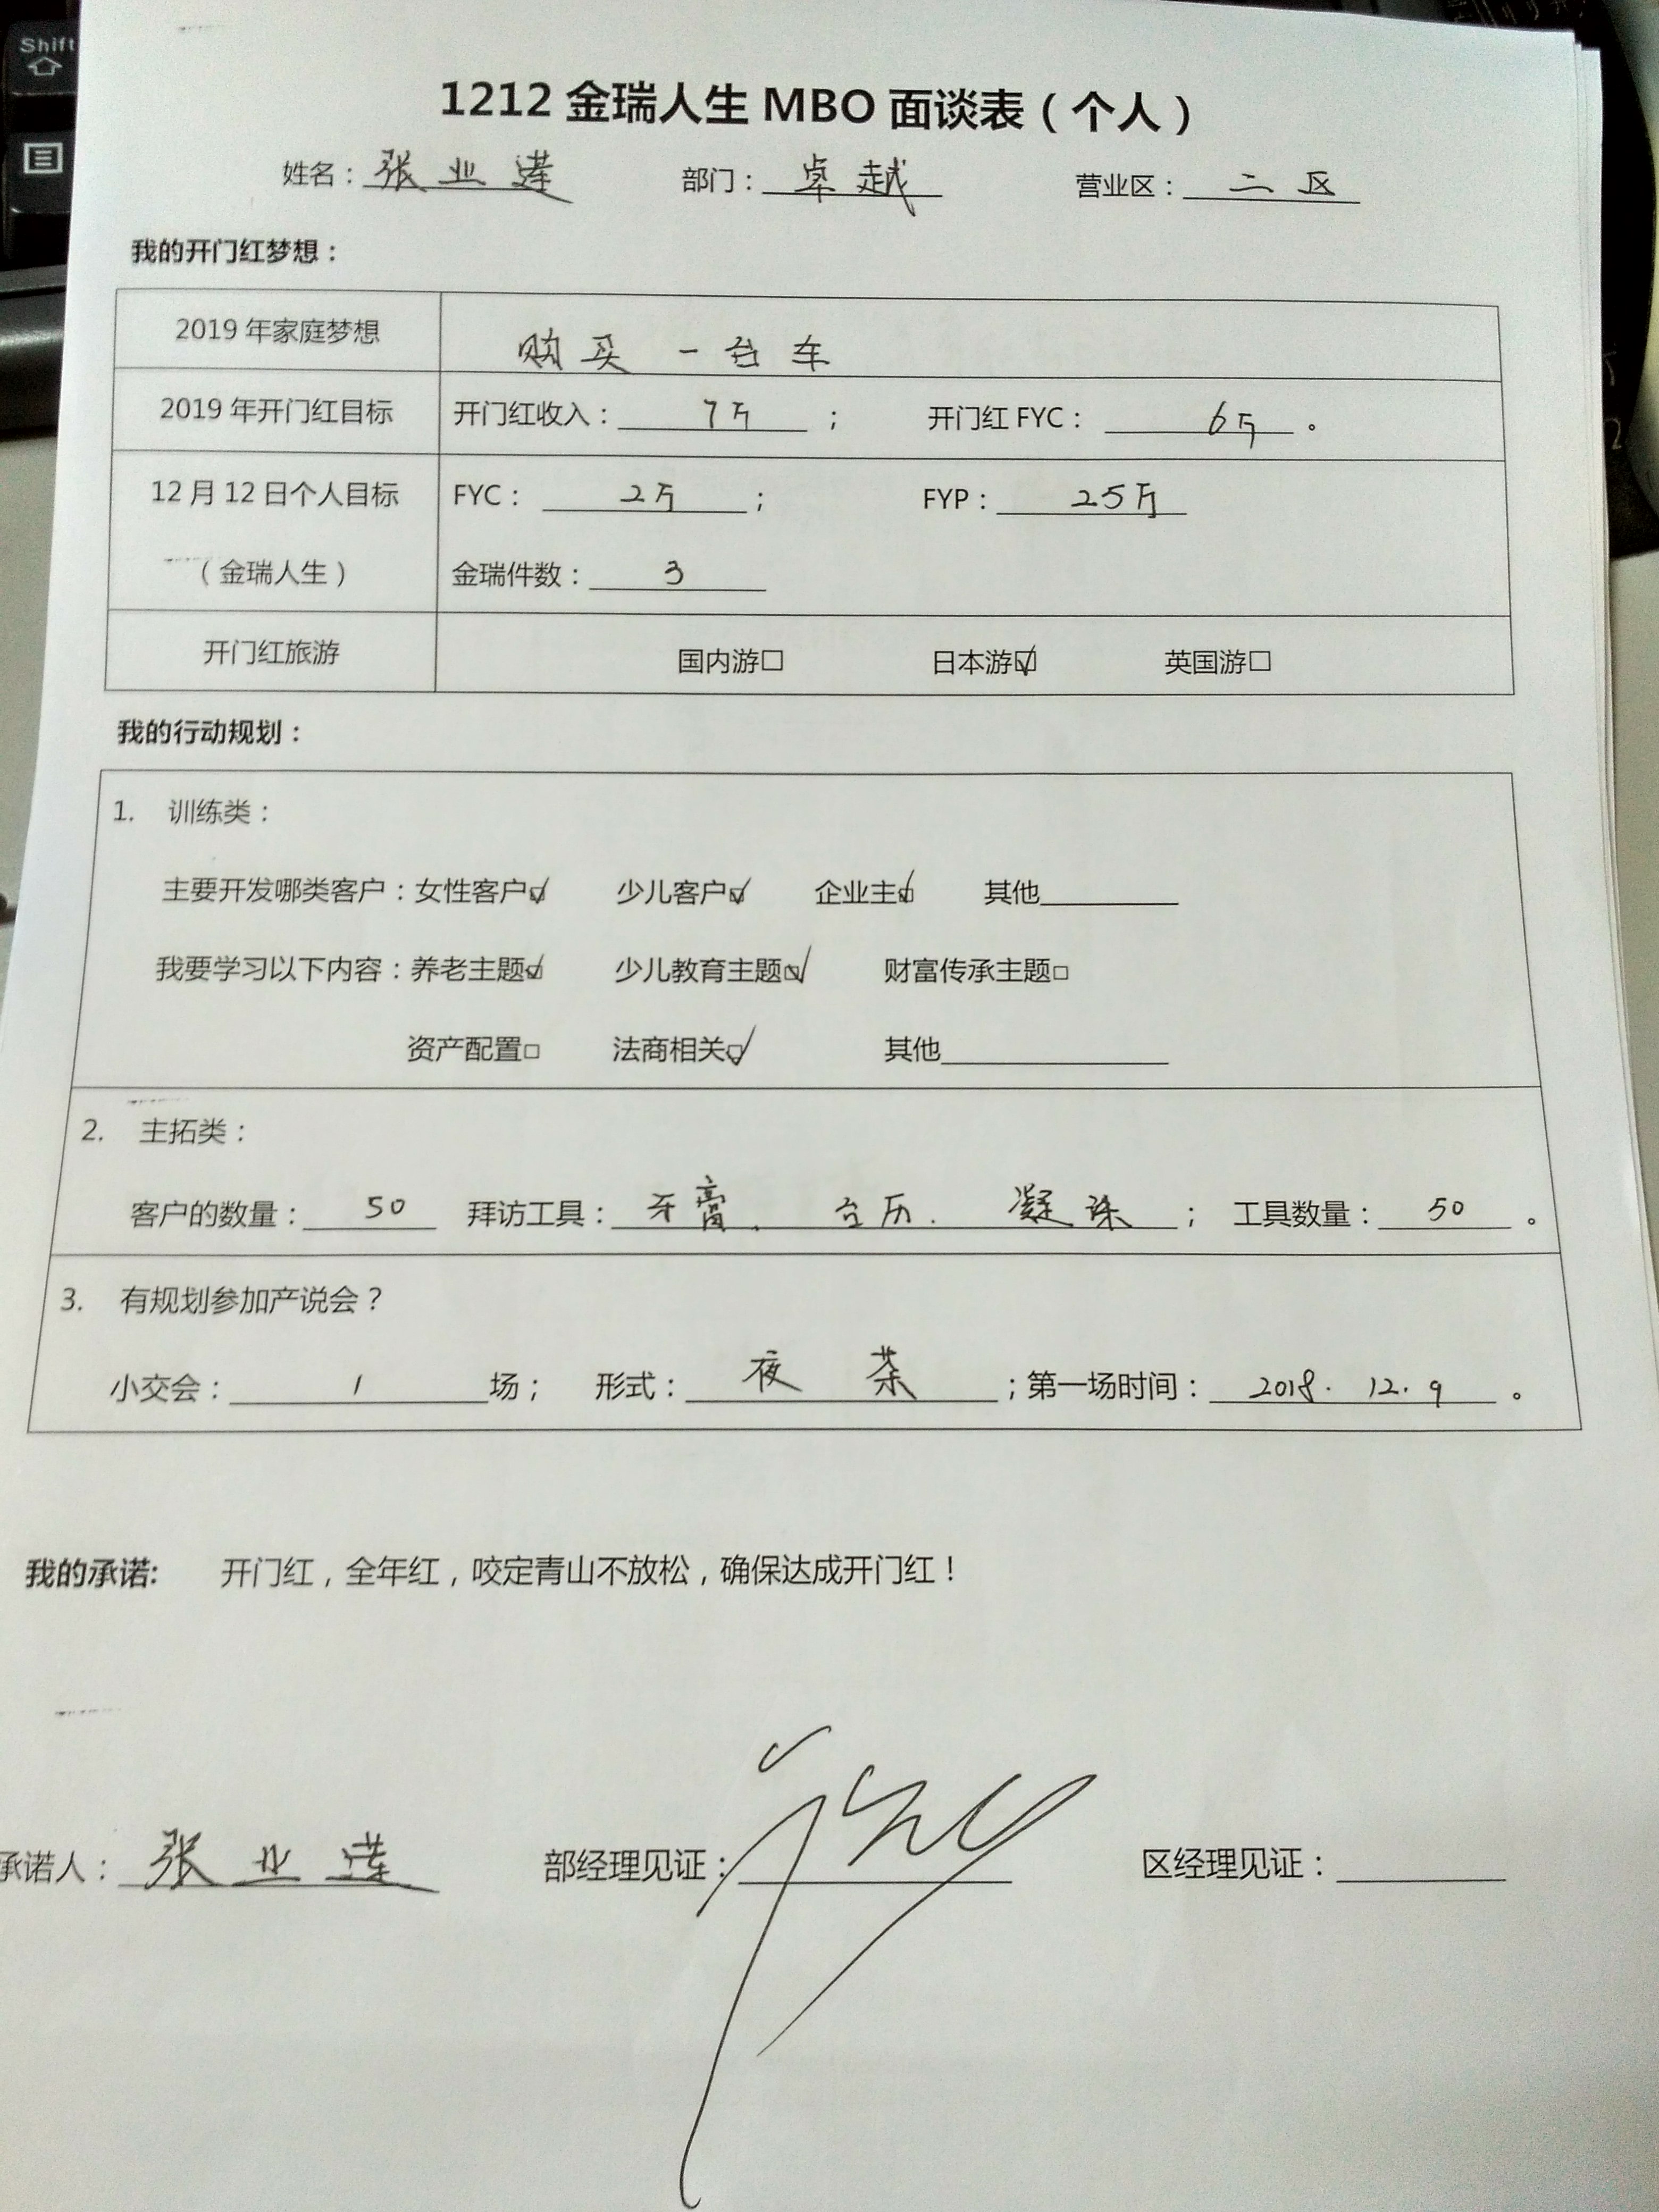 Shift
1212 金瑞人生 MBO 面谈表（个人）
姓名：张业莲 部门：卓越 营业区：二区
我的开门红梦想：
2019 年家庭梦想 购买一台车
2019 年开门红目标 开门红收入：7万； 开门红 FYC：6万。
12 月 12 日个人目标 FYC：2万； FYP：25万
（金瑞人生） 金瑞件数：3
开门红旅游 国内游□ 日本游☑ 英国游□
我的行动规划：
1. 训练类：
主要开发哪类客户：女性客户☑ 少儿客户☑ 企业主☑ 其他
我要学习以下内容：养老主题☑ 少儿教育主题☑ 财富传承主题□
资产配置□ 法商相关☑ 其他
2. 主拓类：
客户的数量：50 拜访工具：牙膏、台历、凝珠； 工具数量：50。
3. 有规划参加产说会？
小交会：1场； 形式：夜茶；第一场时间：2018.12.9。
我的承诺: 开门红，全年红，咬定青山不放松，确保达成开门红！
承诺人：张业莲 部经理见证： 区经理见证：